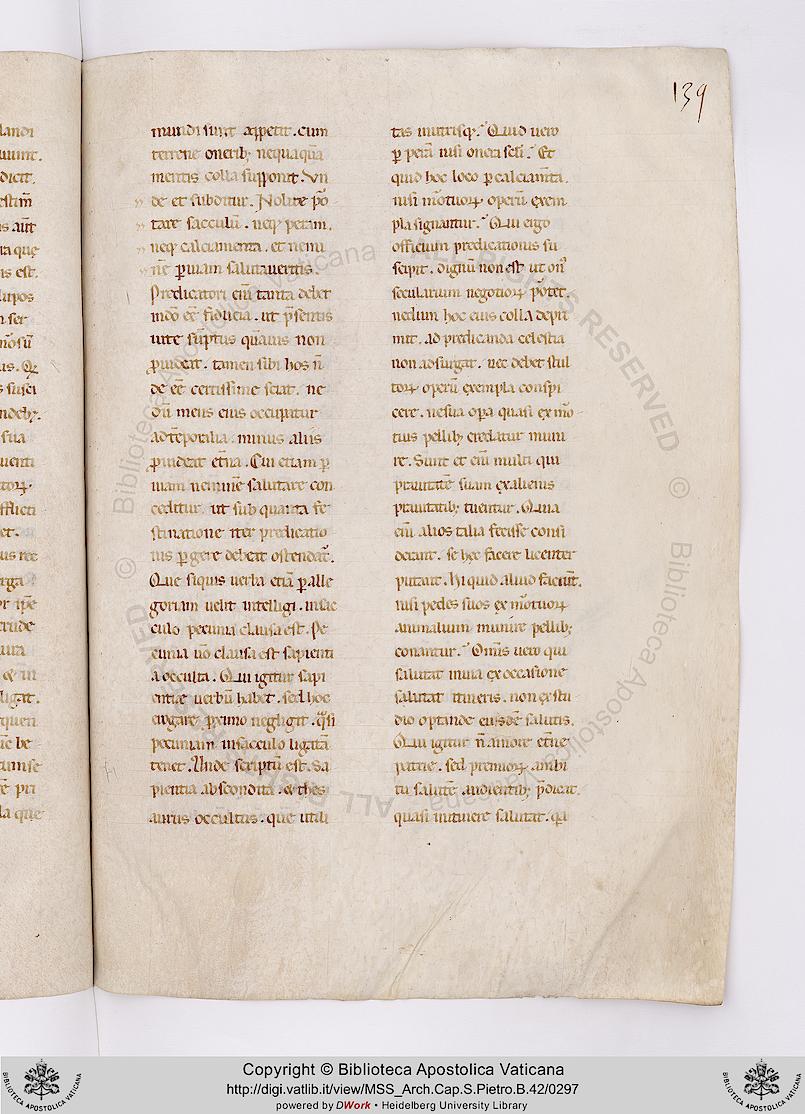 139
mundi sunt appetit. cum
terrene onerib; nequaq̄a
mentis colla supponit. Vn
de et subditur. Nolite por
tare sacculū. neq; peram.
neq; calciamenta. et nemi
nē p uiam salutaueritis.
Predicatori eni tanta debet
indo eē fiducia. ut p̄sentis
uite sūptus quāuis non
p̄uideat. tamen sibi hos ñ
de eē certissime sciat. ne
dū mens eius occupatur
ad tēporalia. minus aliis
p̄uideat et̄na. Cui etiam p
uiam neminē salutare con
ceditur. ut sub quanta fe
stinatione iter predicatio
nis pgere debeat ostendat̄.
Que siquis uerba etiā p alle
goriam uelit intelligi. insac
culo pecunia clausa est. Pe
cunia ūo clausa est sapienti
a occulta. Qui igitur sapi
entie uerbū habet. sed hoc
erogare pximo negligit. q̄si
pecuniam insacculo ligatā
tenet. Unde scriptū est. Sa
pientia abscondita. & thes
aurus occultus. que utili
tas inutrisq;. Quid uero
p perā nisi onera scl̄i. Et
quid hoc loco p calciam̄ta.
nisi mortuorū operū exem
pla signantur. Qui ergo
officium predicationis su
scipit. dignū non est ut on̄
secularium negotiorꝝ portet.
nedum hoc eius colla depri
mit. ad predicanda celestia
non adsurgat. nec debet stul
torꝝ operū exempla conspi
cere. ne sua opa quasi ex mor
tuis pellib; credatur muni
re. Sunt et eni multi qui
prauitatē suam ex alienis
prauitatib; tuentur. Quia
eni alios talia fecisse consi
derant. se hec facere licenter
putant. Hi quid aliud faciunt.
nisi pedes suos ex mortuorꝝ
animalium munire pellib;
conantur. Omīs uero qui
salutat inuia ex occasione
salutat itineris. non ex stu
dio optande eiusdē salutis.
Qui igitur ñ amore et̄ne
patrie. sed premiorꝝ ambi
tu salutē audientib; p̄dicat.
quasi initinere salutat. q̄a
Copyright © Biblioteca Apostolica Vaticana
http://digi.vatlib.it/view/MSS_Arch.Cap.S.Pietro.B.42/0297
powered by DWork • Heidelberg University Library